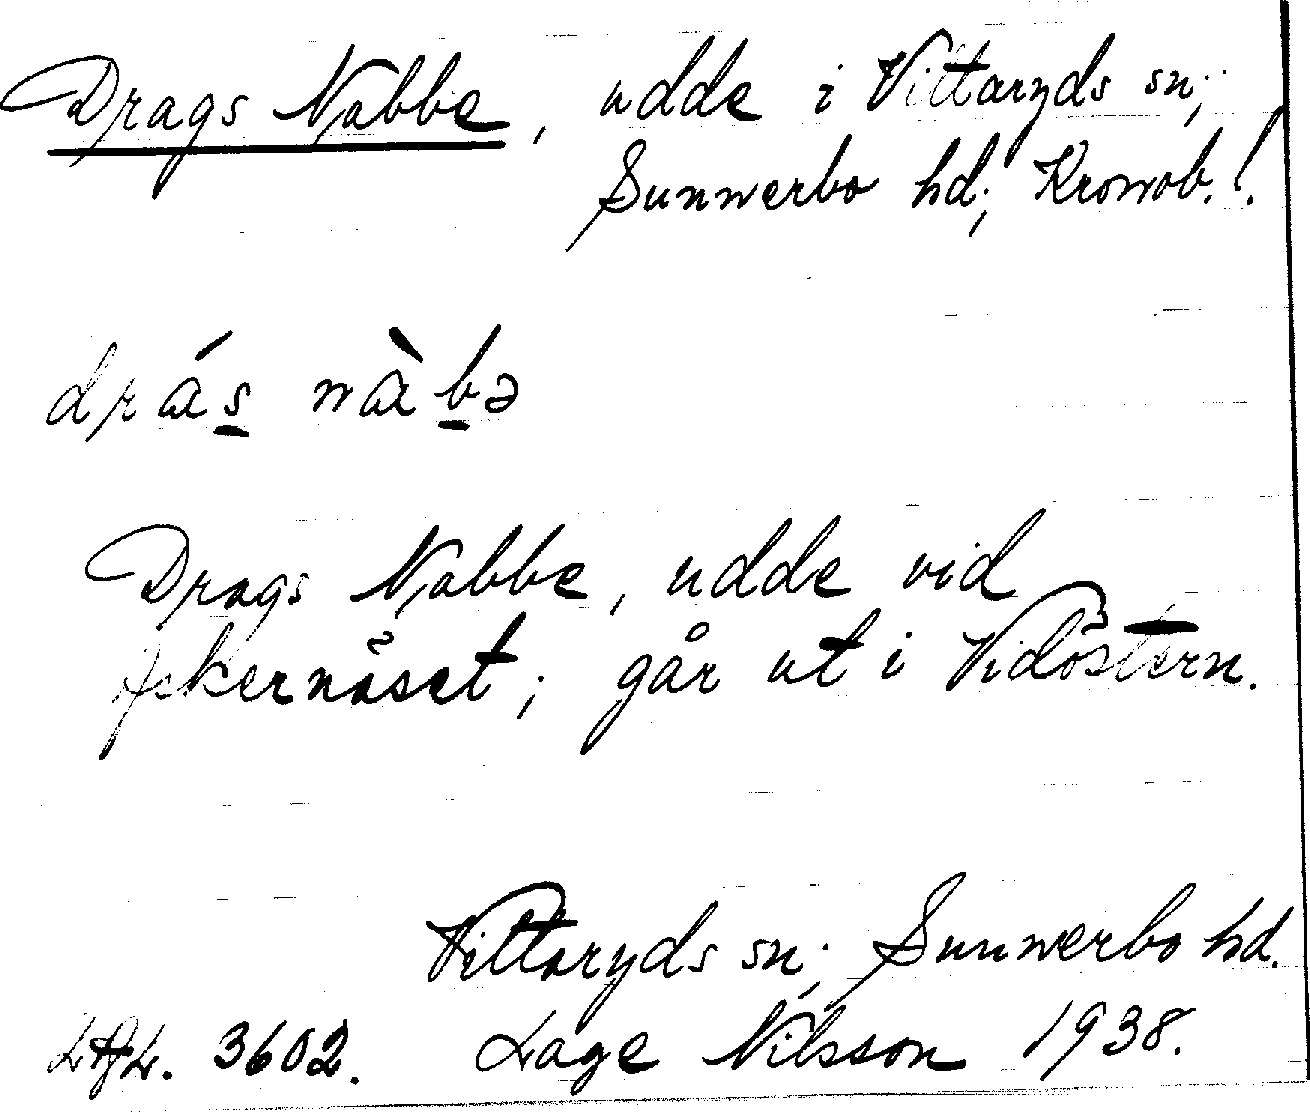 Drags Nabbe, udde i Vittaryds sn;
Sunnerbo hd; Kronob. l.
drás nàbə
Drags Nabbe, udde vid
går ut i Vidöstern.
Vittaryds sn; Sunnerbo hd.
3602. Lage Nilsson 1938.